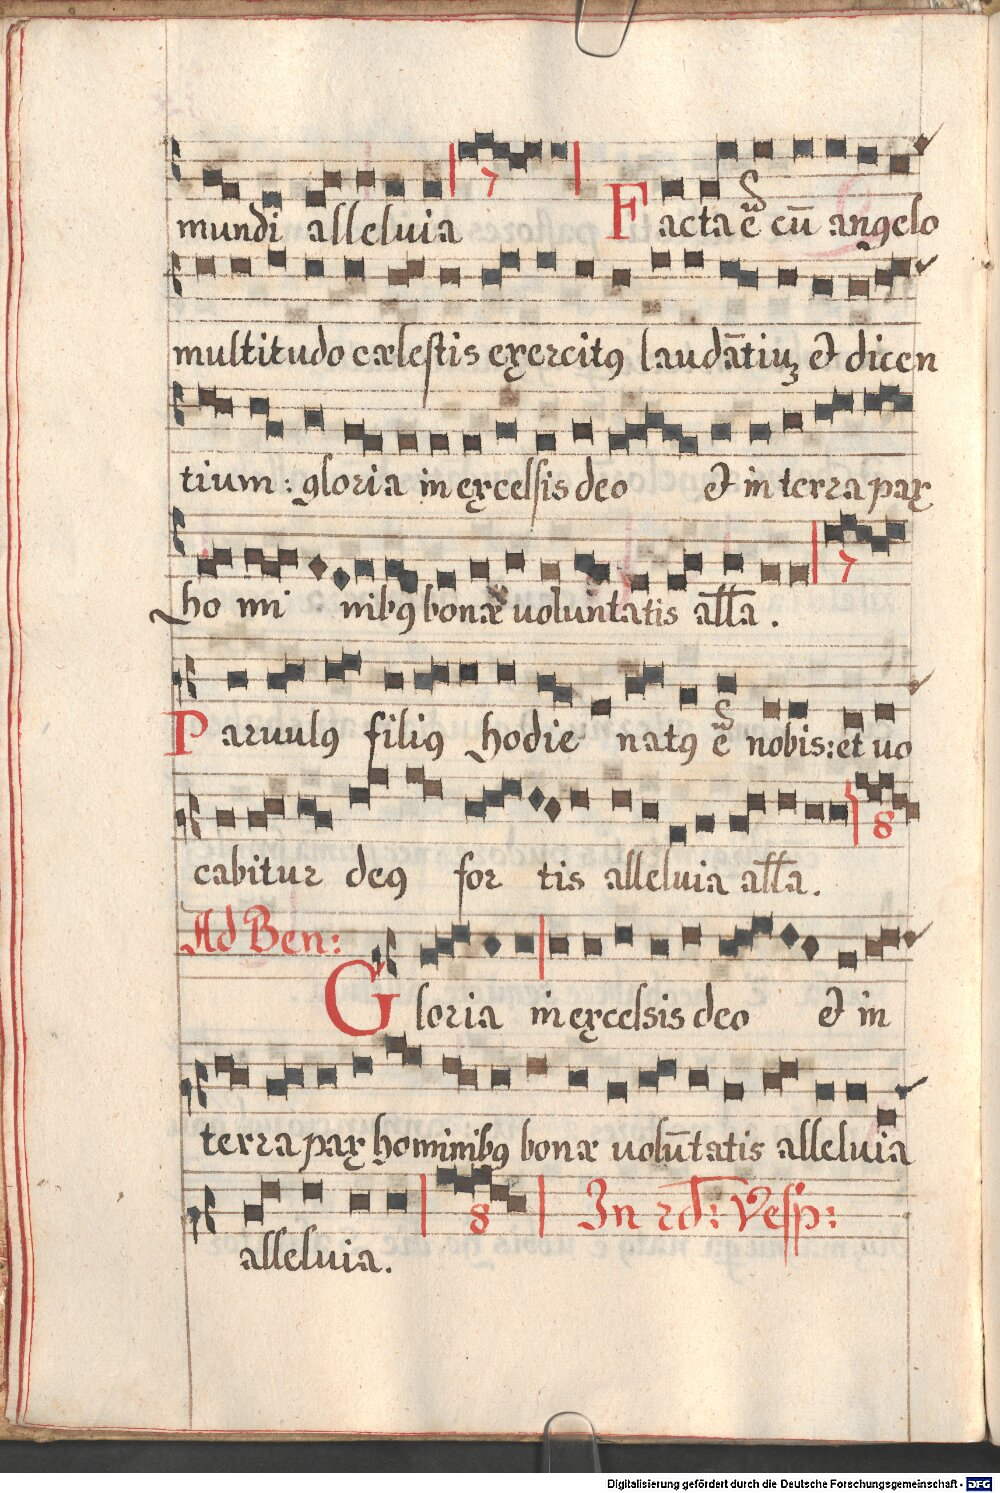 mundi alleluia 7 Facta ē cū angelo
multitudo cælestis exercitꝰ laudātiuꝫ et dicen
tium: gloria in excelsis deo et in terra pax
ho mi nibꝰ bonæ uoluntatis all̄a. 7
Paruulꝰ filiꝰ hodie natꝰ ē nobis: et uo
cabitur deꝰ for tis alleluia all̄a. 8
Ad Ben:
Gloria in excelsis deo et in
terra pax hominibꝰ bonæ uolūtatis alleluia
alleluia. 8 In 2d: Vesp:
Digitalisierung gefördert durch die Deutsche Forschungsgemeinschaft - DFG